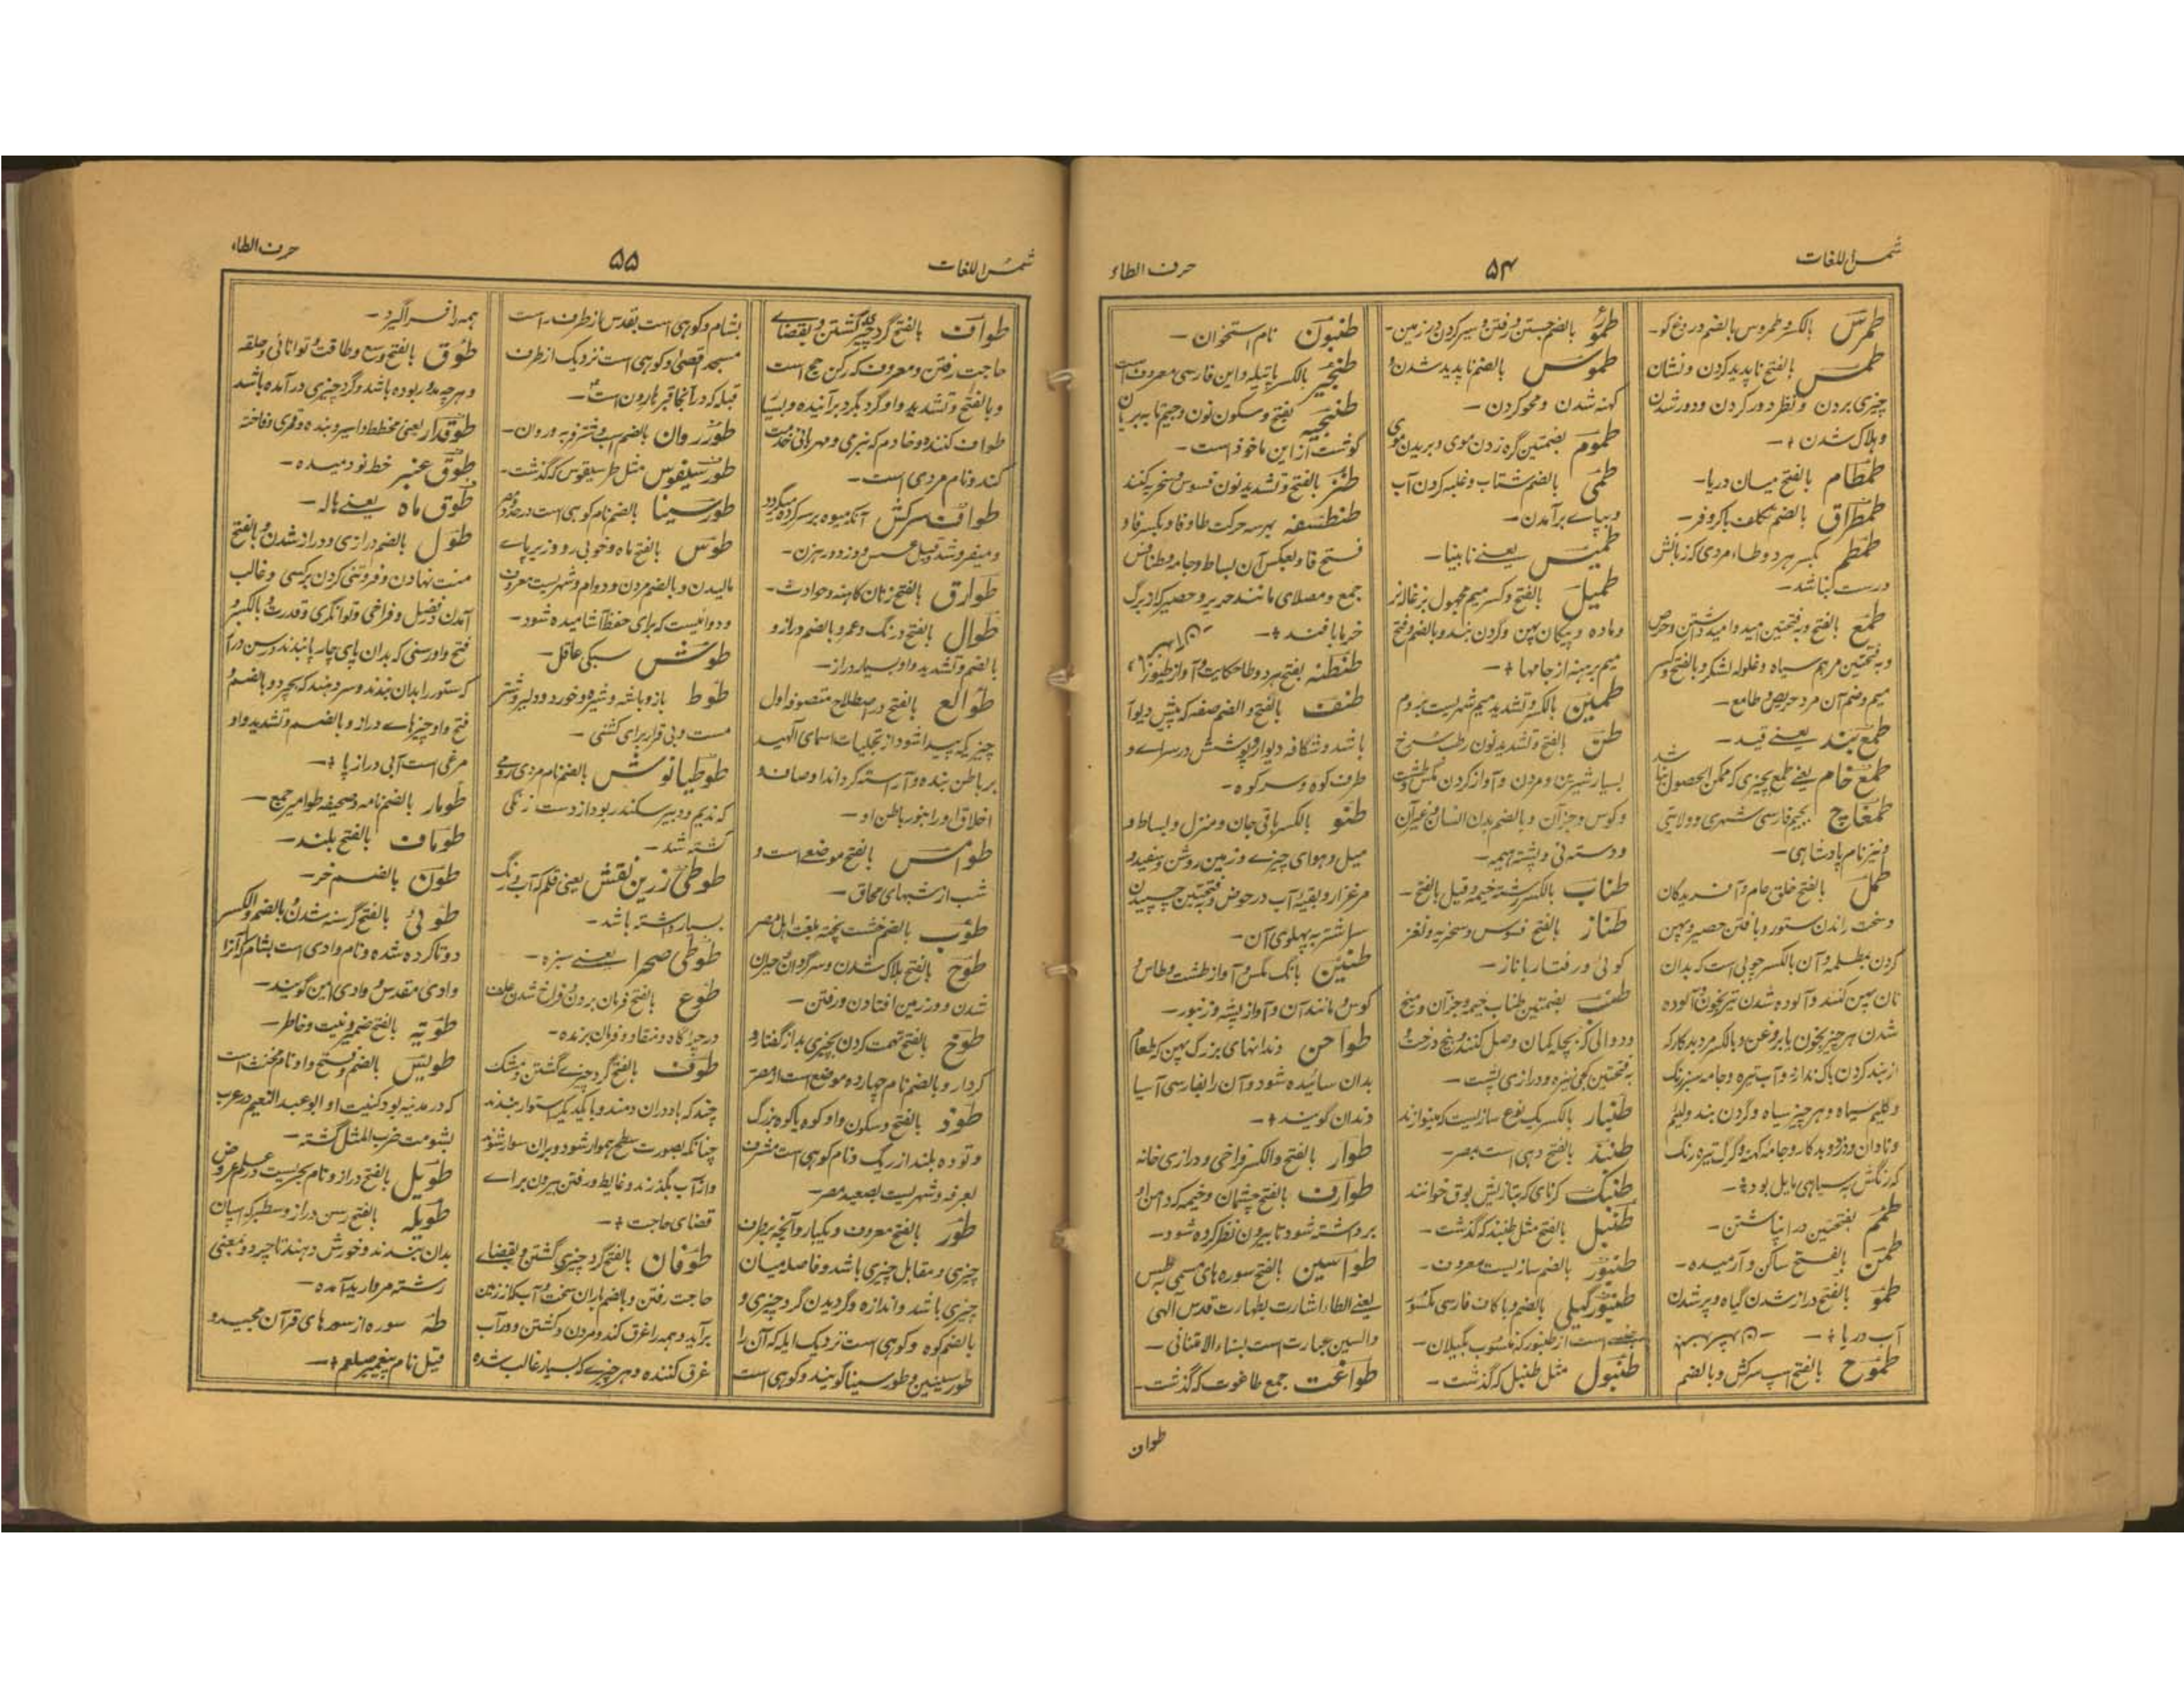 شمس اللغات
۵۴
حرف الطاء
طمرس بالکسر و طمروس بالضم دروغ گو-
طمس بالفتح ناپدید کردن و نشان
چیزی بردن و نظر دور کردن و دور شدن
و ہلاک شدن +-
طمطام بالفتح میان دریا-
طمطراق بالضم تکلف باکروفر-
طمطم بکسر ہر دو طاء مردی کہ زبانش
درست نباشد-
طمع بالفتح و بہ فتحتین امید و امید داشتن و حرص
میم و ضم آن مرد حریص و طامع-
طمع بند یعنے قید-
طمغاج بجیم فارسی شہری و ولایتی
و نیز نام پادشاہی-
طمل بالفتح خلق عام و آفریدگان
و سخت راندن ستور و بافتن حصیر و پہن
نان پہن کنند و آلودہ شدن تیر بخون و آلودہ
شدن ہر چیز بخون یا بروغن و بالکسر مرد بدکار کہ
از بد کردن باک ندارد و آب تیرہ و جامہ سبز رنگ
و گلیم سیاہ و ہر چیز سیاہ و گردن بند و لئیم
و نادان و دزد و بدکار و جامہ کہنہ و گرگ تیرہ رنگ
کہ رنگش بسیاہی مایل بود +-
طمم بفتحتین در انباشتن-
طمن بالفتح ساکن و آرمیدہ-
طمو بالفتح دراز شدن گیاہ و پر شدن
آب دریا +-
طموح بالفتح اسپ سرکش و بالضم
طموس بالضم ناپدید شدن و
کہنہ شدن و محو کردن-
طموم بضمتین گرہ زدن موی و بریدن موی
طمی بالضم شتاب و غلبہ کردن آب
و بپاے برآمدن-
طمیس یعنے نابینا-
طمیل بالفتح و کسر میم مجہول بزغالہ نر
و مادہ و پیکان پہن و گردن بند و بالضم و فتح
میم برہنہ از جامہا +-
طمین بالکسر و تشدید میم شہریست بروم
طن بالفتح و تشدید نون رطب سرخ
و دستہ نی و پشتہ ہیمہ-
طناب بالکسر رشتہ خیمہ و قیل بالفتح-
طناز بالفتح فسوس و سخریہ و لغز
گوئی و رفتار با ناز-
طنب بضمتین طناب خیمہ و جز آن و میخ
بہ فتحتین کجی نیزہ و درازی پشت-
طنبار بالکسر یک نوع سازیست کہ مینوازند
طنبد بالفتح دہی است بمصر-
طنبک کرنای کہ بتازیش بوق خوانند
طنبل بالفتح مثل طنبند کہ گذشت-
طنبور بالضم سازیست معروف-
طنبور گیلی بالضم و با کاف فارسی مکسور
طنبول مثل طنبل کہ گذشت-
طنبون نام استخوان-
طنجیر بالکسر پاتیلہ و این فارسی معروفست
گوشت از این ماخوذ است-
طنز بالفتح و تشدید نون فسوس و سخریہ کنند
طنطسفہ بہر سہ حرکت طا و فا و بکسر فا و
فتح فا و بعکس آن بساط و جامہ و طنافس
جمع و مصلای مانند حریر و حصیر کہ از برگ
خرما بافند +-
طنطنہ بفتح ہر دو طا حکایت و آواز طنبور
طنف بالفتح و الضم صفہ کہ پیش دیوار
باشد و شگافہ دیوار و پوشش در سراے و
طرف کوہ و سر کوہ-
طنو بالکسر باقی جان و منزل و بساط و
میل و ہوای چیزے و زمین روشن و سفید و
شتر بہ پہلوی آن-
طنین بانگ مگس و آواز طشت و طاس و
کوس و مانند آن و آواز پشہ و زنبور-
طواحن دندانہای بزرگ پہن کہ طعام
بدان سائیدہ شود و آن را بفارسی آسیا
دندان گویند +-
طوار بالفتح و الکسر فراخی و درازی خانہ
طوارف بالفتح چشمان و خیمہ کہ دامن او
برداشتہ شود تا بیرون نظر کردہ شود-
طواسین بالفتح سورہ ہای مسمی بہ طس
یعنے الطاء اشارت بطہارت قدس الٰہی
و السین عبارت است بسناء الامتنانی-
طواغت جمع طاغوت کہ گذشت-
طواف
شمس اللغات
۵۵
حرف الطاء
طواف بالفتح گرد چیزے گشتن و بقضاے
حاجت رفتن و معروف کہ رکن حج است
و بالفتح و تشدید واو گرد بگرد برآیندہ و بسیار
طواف کنندہ و خادم کہ بنرمی و مہربانی خدمت
کند و نام مردی است-
طواف سرکش آنکہ میوہ بر سر کردہ میگردد
و میفروشد و قیل عسس و دزد و رہزن-
طوارق بالفتح زنان کاہنہ و حوادث-
طوال بالفتح درنگ و عمر و بالضم دراز و
بالضم و تشدید واو بسیار دراز-
طوالع بالفتح در اصطلاح متصوفہ اول
چیزیکہ پیدا شود از تجلیات اسمای الٰہیہ
بر باطن بندہ و آراستہ گرداند اوصاف و
اخلاق او را بنور باطن او-
طوامس بالفتح موضع است و
شب از شبہای محاق-
طوب بالضم خشت پختہ بلغت اہل مصر
طوح بالفتح ہلاک شدن و سرگردان و حیران
شدن و در زمین افتادن و رفتن-
طوخ بالفتح تہمت کردن بچیزی بد از گفتار و
کردار و بالضم نام چہاردہ موضع است از مصر
طود بالفتح و سکون واو کوہ یا کوہ بزرگ
و تودہ بلند از ریگ و نام کوہی است مشرف
بعرفہ و شہریست بصعید مصر-
طور بالفتح معروف و یکبار و آنچہ بر طرف
چیزی و مقابل چیزی باشد و فاصلہ میان
چیزی باشد و اندازہ و گردیدن گرد چیزی و
بالضم کوہ و کوہی است نزدیک ایلہ کہ آن را
طور سینین و طور سینا گویند و کوہی است
بشام و کوہی است بقدس از طرف راست
مسجد اقصی و کوہی است نزدیک از طرف
قبلہ کہ در آنجا قبر ہارون است-
طور سیفوس مثل طر سیقوس کہ گذشت-
طوس بالفتح ماہ و خوبی رو و زیر پاے
مالیدن و بالضم مردن و دوام و شہریست معروف
و دوائیست کہ برای حفظ آشامیدہ شود-
طوش سبکی عاقل-
طوط باز و باشہ و شپرہ و خورد و دلیر و شتر
مست و بی قرار برای کشنی-
طوطیانوش بالضم نام مردی رومی
کہ ندیم و دبیر سکندر بود از دست زنگی
کشتہ شد-
طوطی زرین نقش یعنی قلم کہ آب زنگ
بسیار داشتہ باشد-
طوطی صحرا یعنے سبزہ-
طوع بالفتح فرمان بردن و فراخ شدن علف
در چراگاہ و منقاد و فرمان برندہ-
طوف بالفتح گرد چیزے گشتن و مشک
چند کہ باد دران دمند و با یکدیگر استوار بندند
چنانکہ بصورت سطح ہموار شود و بران سوار شوند
و از آب بگذرند و غایط و رفتن بیرون براے
قضای حاجت +-
طوفان بالفتح گرد چیزی گشتن و بقضاے
حاجت رفتن و بالضم باران سخت و آب کہ از زمین
برآید و ہمہ را غرق کند و مردن و کشتن و در آب
غرق کنندہ و ہر چیزے کہ بسیار غالب شدہ
ہمہ را فراگیرد-
طوق بالفتح وسع و طاقت و توانائی و حلقہ
و ہر چہ مدور بودہ باشد و گرد چیزی در آمدہ باشد
طوقدار یعنی مخطط و اسیر و بندہ و قمری و فاختہ
طوق عنبر خط نو دمیدہ-
طوق ماہ یعنے ہالہ-
طول بالضم درازی و دراز شدن و بالفتح
منت نہادن و فزونی کردن بر کسی و غالب
آمدن و فضل و فراخی و توانگری و قدرت و بالکسر و
فتح واو رسنی کہ بدان پای چارپا بندند و رسن دراز
کہ ستور را بدان بندند و سر دہند کہ بچرد و بالضم و
فتح واو چیزہاے دراز و بالضم و تشدید واو
مرغی است آبی دراز پا +-
طومار بالضم نامہ و صحیفہ طوامیر جمع-
طوماف بالفتح بلند-
طون بالضم خر-
طوئی بالفتح گرسنہ شدن و بالضم و الکسر
دوتا کردہ شدہ و نام وادی است بشام کہ آنرا
وادی مقدس و وادی ایمن گویند-
طویہ بالفتح ضمیر و نیت و خاطر-
طویس بالضم و فتح واو نام مخنث است
کہ در مدینہ بود کنیت او ابو عبد النعیم در عرب
بشومت ضرب المثل گشتہ-
طویل بالفتح دراز و نام بحریست در علم عروض
طویلہ بالفتح رسن دراز و سطبر کہ اسپان
بدان بندند و خورش دہند تا چرد و بمعنی
رشتہ مروارید آمدہ-
طہ سورہ از سورہای قرآن مجید و
قیل نام پیغمبر صلعم +-